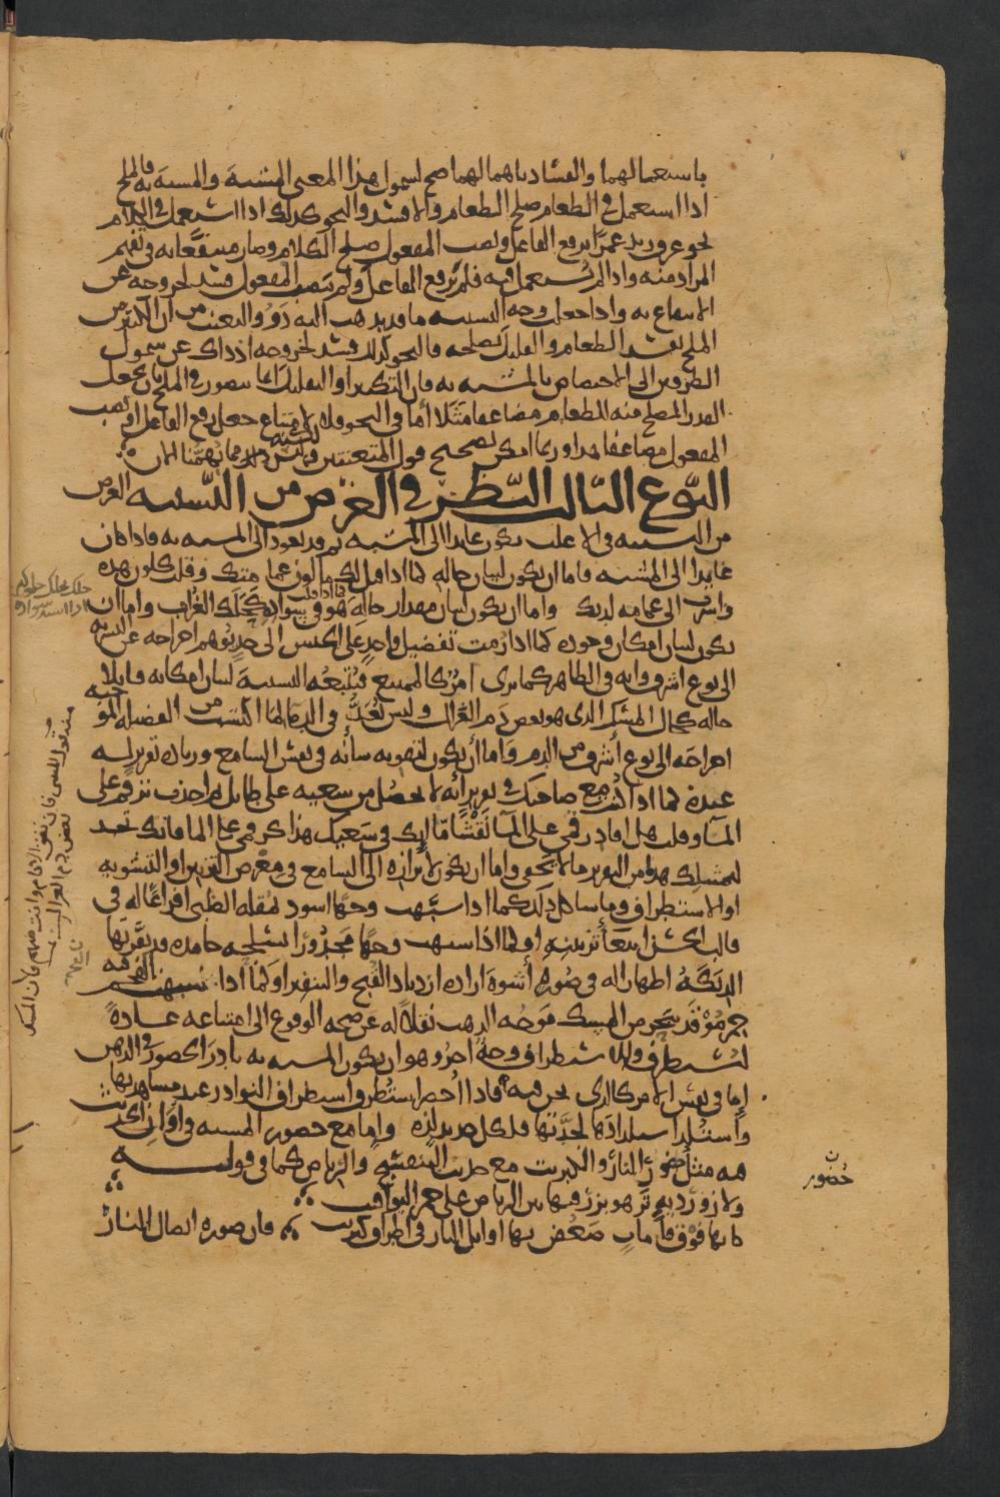 باستعمالهما والفساد باهمالهما صح لشمول هذا المعنى المشبه والمشبه به فالملح
اذا استعمل في الطعام صلح الطعام والا فسد والنحو كذلك اذا استعمل في الكلام
نحو عرف زيد عمرا برفع الفاعل ونصب المفعول صلح الكلام وصار منتفعا به في تفهم
المراد منه واذا لم يستعمل فيه فلم يرفع الفاعل ولم ينصب المفعول فسد لخروجه عن
الانتفاع به واذا جعل وجه التشبيه ما قد يذهب اليه ذوو التعنت من ان الكثير من
الملح يفسد الطعام والقليل يصلحه فالنحو كذلك فسد لخروجه اذ ذاك عن شمول
الطرفين الى الاختصاص بالمشبه به فان التكثير او التقليل انما يتصور في الملح بان يجعل
القدر المصلح منه للطعام مضاعفا مثلا اما في النحو فلا لامتناع جعل رفع الفاعل او نصب
المفعول مضاعفا هذا وربما امكن تصحيح قول المتعنتين ولكن ليس مما يهمنا الان
النوع الثالث النظر في الغرض من التشبيه الغرض
من التشبيه في الاغلب يكون عايدا الى المشبه ثم قد يعود الى المشبه به فاذا كان
عايدا الى المشبه فاما ان يكون لبيان حاله كما اذا قيل لك ما لون عمامتك وقلت كلون هذه
واشرت الى عمامة لديك واما ان يكون لبيان مقدار حاله كما اذا قلت هو في سواده كحلك الغراب واما ان
يكون لبيان امكان وجوده كما اذا رمت تفضيل واحد على الجنس الى حد يوهم اخراجه عن البشرية
الى نوع اشرف وانه في الظاهر كما ترى امر كالممتنع فتتبعه التشبيه لبيان امكانه قايلا
حاله كحال المسك الذي هو بعض دم الغزال وليس يعد في الدماء لما اكتسب من الفضيلة الموجبة
اخراجه الى نوع اشرف من الدم واما ان يكون لتقوية شانه في نفس السامع وزيادة تقرير له
عنده كما اذا كنت مع صاحبك في تقرير انه لا يحصل من سعيه على طايل ثم اخذت ترقم على
الماء وقلت هل افاد رقمي على الماء نقشا ما انك في سعيك هذا كرقمي على الماء فانك تجد
لتمثيلك هذا من التقرير ما لا يخفى واما ان يكون لابرازه الى السامع في معرض التزيين او التشويه
او الاستطراف وما شاكل ذلك كما اذا شبهت وجها اسود بمقلة الظبي افراغا له في
قالب الحسن ابتغاء تزيينه او كما اذا شبهت وجها مجدورا بسلحة جامدة قد نقرتها
الديكة اظهارا له في صورة اشوه ارادة ازدياد القبح والتنفير او كما اذا شبهت الفحم فيه
جمر موقد ببحر من المسك موجه الذهب نقلا له عن صحة الوقوع الى امتناعه عادة
ليستطرف وللاستطراف وجه اخر وهو ان يكون المشبه به نادر الحضور في الذهن
اما في نفس الامر كالذي نحن فيه فاذا احضر استطرف استطراف النوادر عند مشاهدتها
واستلذ استلذاذها لجدتها فلكل جديد لذة واما مع حضور المشبه في اوان الحديث
فيه مثل حضور النار والكبريت مع حديث البنفسج والرياض كما في قوله
ولازوردية تزهو بزرقتها بين الرياض على حمر اليواقيت
كانها فوق قامات ضعفن بها اوايل النار في اطراف كبريت فان صورة اتصال النار
حضور